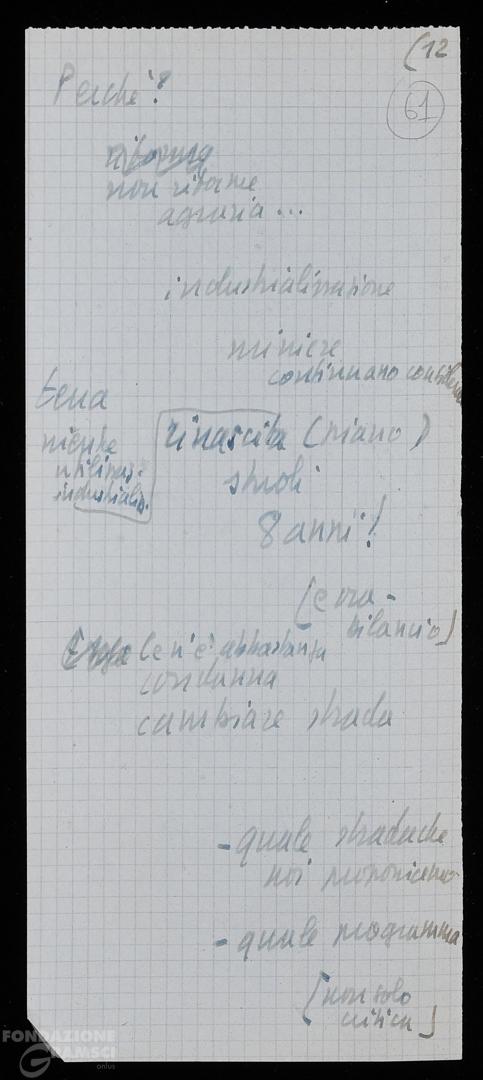 (12
61
Perché?
riforma
non riforme
agraria...
industrializzazione
miniere
continuano
terra
niente
utilizzaz.
industrializ.
rinascita (piano)
studi
8 anni!
[e ora -
bilancio]
Ce n'è abbastanza
condanna
cambiare strada
- quale strada che
noi proponiamo
- quale programma
[non solo
critica]
FONDAZIONE
GRAMSCI
onlus